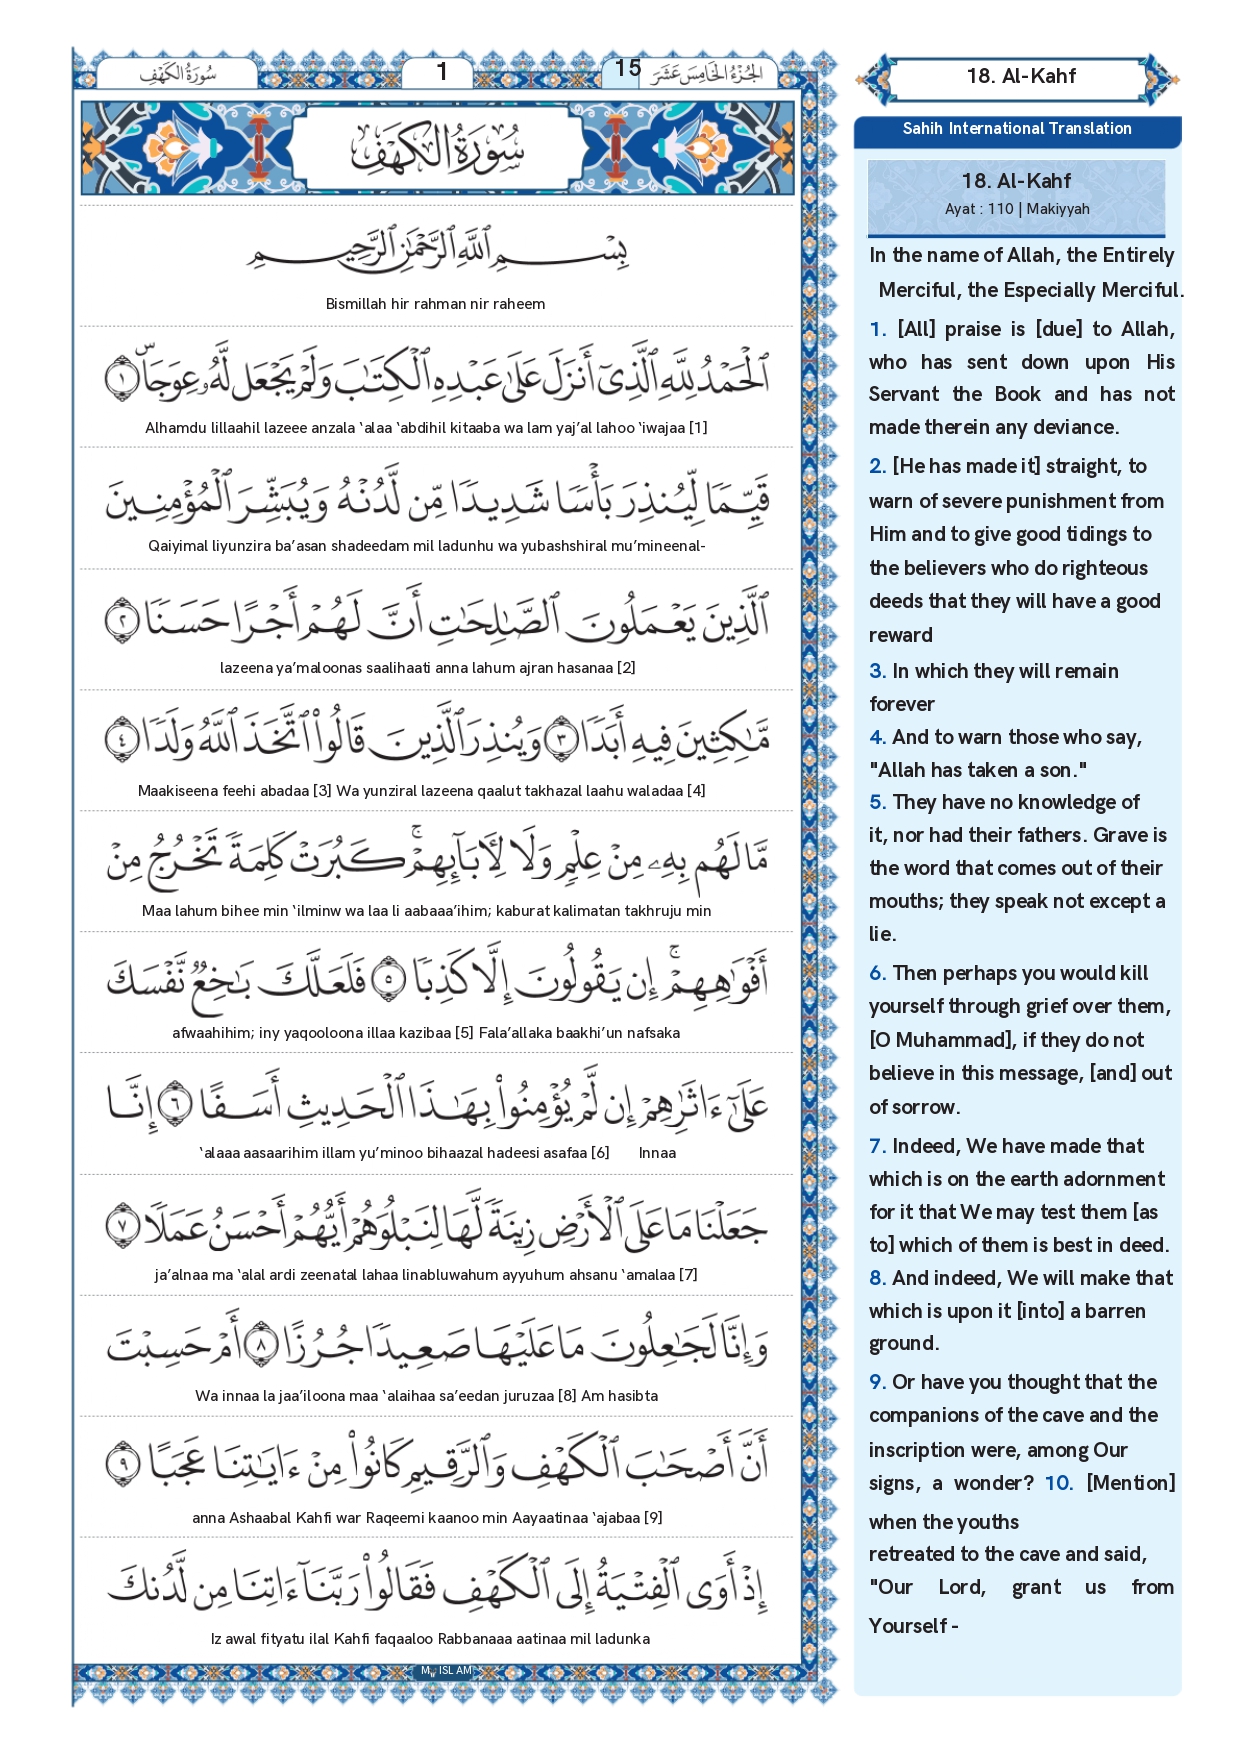 سُورَةُ الكَهْفِ
1
15
الجُزْءُ الخَامِسَ عَشَرَ
سُورَةُ الكَهْفِ
بِسْمِ ٱللَّهِ ٱلرَّحْمَٰنِ ٱلرَّحِيمِ
Bismillah hir rahman nir raheem
ٱلْحَمْدُ لِلَّهِ ٱلَّذِىٓ أَنزَلَ عَلَىٰ عَبْدِهِ ٱلْكِتَٰبَ وَلَمْ يَجْعَل لَّهُۥ عِوَجَاۜ ١
Alhamdu lillaahil lazeee anzala ‘alaa ‘abdihil kitaaba wa lam yaj’al lahoo ‘iwajaa [1]
قَيِّمًا لِّيُنذِرَ بَأْسًا شَدِيدًا مِّن لَّدُنْهُ وَيُبَشِّرَ ٱلْمُؤْمِنِينَ
Qaiyimal liyunzira ba’asan shadeedam mil ladunhu wa yubashshiral mu’mineenal-
ٱلَّذِينَ يَعْمَلُونَ ٱلصَّٰلِحَٰتِ أَنَّ لَهُمْ أَجْرًا حَسَنًا ٢
lazeena ya’maloonas saalihaati anna lahum ajran hasanaa [2]
مَّٰكِثِينَ فِيهِ أَبَدًا ٣ وَيُنذِرَ ٱلَّذِينَ قَالُوا۟ ٱتَّخَذَ ٱللَّهُ وَلَدًا ٤
Maakiseena feehi abadaa [3] Wa yunziral lazeena qaalut takhazal laahu waladaa [4]
مَّا لَهُم بِهِۦ مِنْ عِلْمٍ وَلَا لِءَابَآئِهِمْ ۚ كَبُرَتْ كَلِمَةً تَخْرُجُ مِنْ
Maa lahum bihee min ‘ilminw wa laa li aabaaa’ihim; kaburat kalimatan takhruju min
أَفْوَٰهِهِمْ ۚ إِن يَقُولُونَ إِلَّا كَذِبًا ٥ فَلَعَلَّكَ بَٰخِعٌ نَّفْسَكَ
afwaahihim; iny yaqooloona illaa kazibaa [5] Fala’allaka baakhi’un nafsaka
عَلَىٰٓ ءَاثَٰرِهِمْ إِن لَّمْ يُؤْمِنُوا۟ بِهَٰذَا ٱلْحَدِيثِ أَسَفًا ٦ إِنَّا
‘alaaa aasaarihim illam yu’minoo bihaazal hadeesi asafaa [6] Innaa
جَعَلْنَا مَا عَلَى ٱلْأَرْضِ زِينَةً لَّهَا لِنَبْلُوَهُمْ أَيُّهُمْ أَحْسَنُ عَمَلًا ٧
ja’alnaa ma ‘alal ardi zeenatal lahaa linabluwahum ayyuhum ahsanu ‘amalaa [7]
وَإِنَّا لَجَٰعِلُونَ مَا عَلَيْهَا صَعِيدًا جُرُزًا ٨ أَمْ حَسِبْتَ
Wa innaa la jaa’iloona maa ‘alaihaa sa’eedan juruzaa [8] Am hasibta
أَنَّ أَصْحَٰبَ ٱلْكَهْفِ وَٱلرَّقِيمِ كَانُوا۟ مِنْ ءَايَٰتِنَا عَجَبًا ٩
anna Ashaabal Kahfi war Raqeemi kaanoo min Aayaatinaa ‘ajabaa [9]
إِذْ أَوَى ٱلْفِتْيَةُ إِلَى ٱلْكَهْفِ فَقَالُوا۟ رَبَّنَآ ءَاتِنَا مِن لَّدُنكَ
Iz awal fityatu ilal Kahfi faqaaloo Rabbanaaa aatinaa mil ladunka
My ISLAM
18. Al-Kahf
Sahih International Translation
18. Al-Kahf
Ayat : 110 | Makiyyah
In the name of Allah, the Entirely
Merciful, the Especially Merciful.
1. [All] praise is [due] to Allah,
who has sent down upon His
Servant the Book and has not
made therein any deviance.
2. [He has made it] straight, to
warn of severe punishment from
Him and to give good tidings to
the believers who do righteous
deeds that they will have a good
reward
3. In which they will remain
forever
4. And to warn those who say,
"Allah has taken a son."
5. They have no knowledge of
it, nor had their fathers. Grave is
the word that comes out of their
mouths; they speak not except a
lie.
6. Then perhaps you would kill
yourself through grief over them,
[O Muhammad], if they do not
believe in this message, [and] out
of sorrow.
7. Indeed, We have made that
which is on the earth adornment
for it that We may test them [as
to] which of them is best in deed.
8. And indeed, We will make that
which is upon it [into] a barren
ground.
9. Or have you thought that the
companions of the cave and the
inscription were, among Our
signs, a wonder? 10. [Mention]
when the youths
retreated to the cave and said,
"Our Lord, grant us from
Yourself -